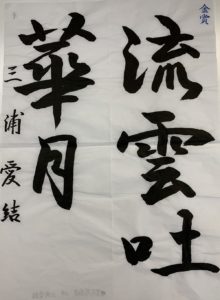 金賞
流雲吐
華月
三浦愛結